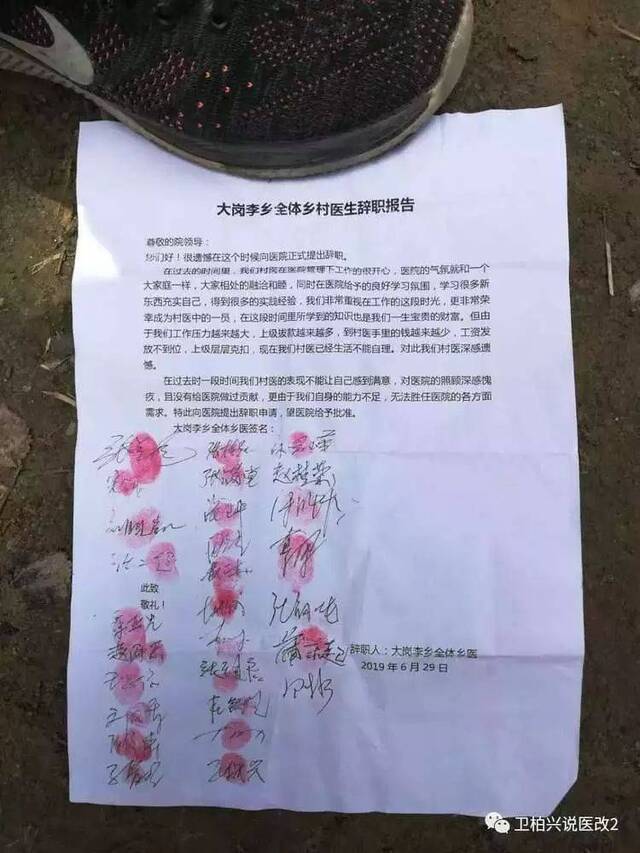 大岗李乡全体乡村医生辞职报告
尊敬的院领导:
你们好!很遗憾在这个时候向医院正式提出辞职。
在过去的时间里,我们村医在医院管理下工作的很开心,医院的气氛就和一个
大家庭一样,大家相处的融洽和睦,同时在医院给予的良好学习氛围,学习很多新
东西充实自己,得到很多的实践经验,我们非常重视在工作的这段时光,更非常荣
幸成为村医中的一员,在这段时间里所学到的知识也是我们一生宝贵的财富。但由
于我们工作压力越来越大,上级拔款越来越多,到村医手里的钱越来越少,工资发
放不到位,上级层层克扣,现在我们村医已经生活不能自理。对此我们村医深感遗
憾。
在过去时一段时间我们村医的表现不能让自己感到满意,对医院的照顾深感愧
疚,且没有给医院做过贡献,更由于我们自身的能力不足,无法胜任医院的各方面
需求。特此向医院提出辞职申请,望医院给予批准。
大岗李乡全体乡医签名:
赵桂荣
此致
敬礼!
辞职人:大岗李乡全体乡医
2019年6月29日
卫柏兴说医改2